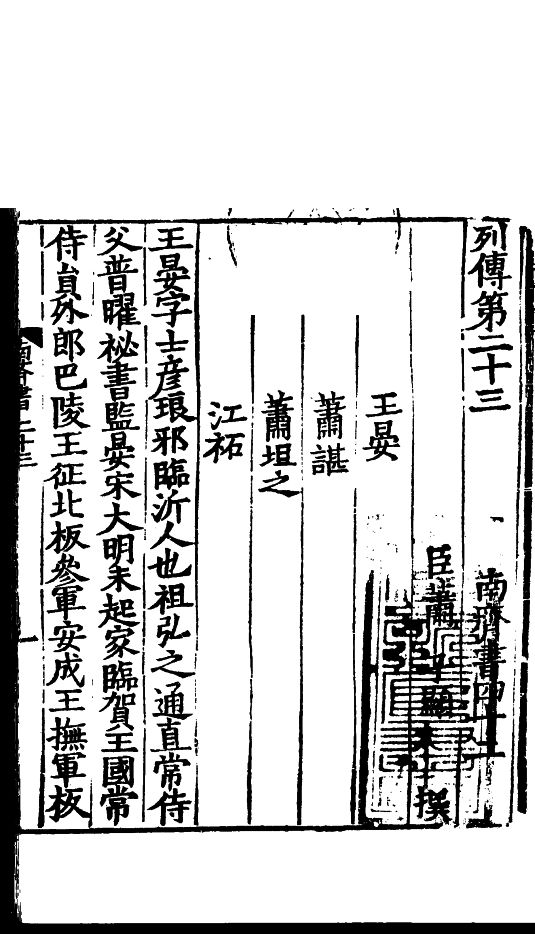 列傳第二十三　南齊書四十二
臣蕭　子顯　撰
王晏
蕭諶
蕭坦之
江祏
王晏字士彦琅邪臨沂人也祖弘之通直常侍
父普曜祕書監晏宋大明末起家臨賀王國常
侍員外郎巴陵王征北板參軍安成王撫軍板